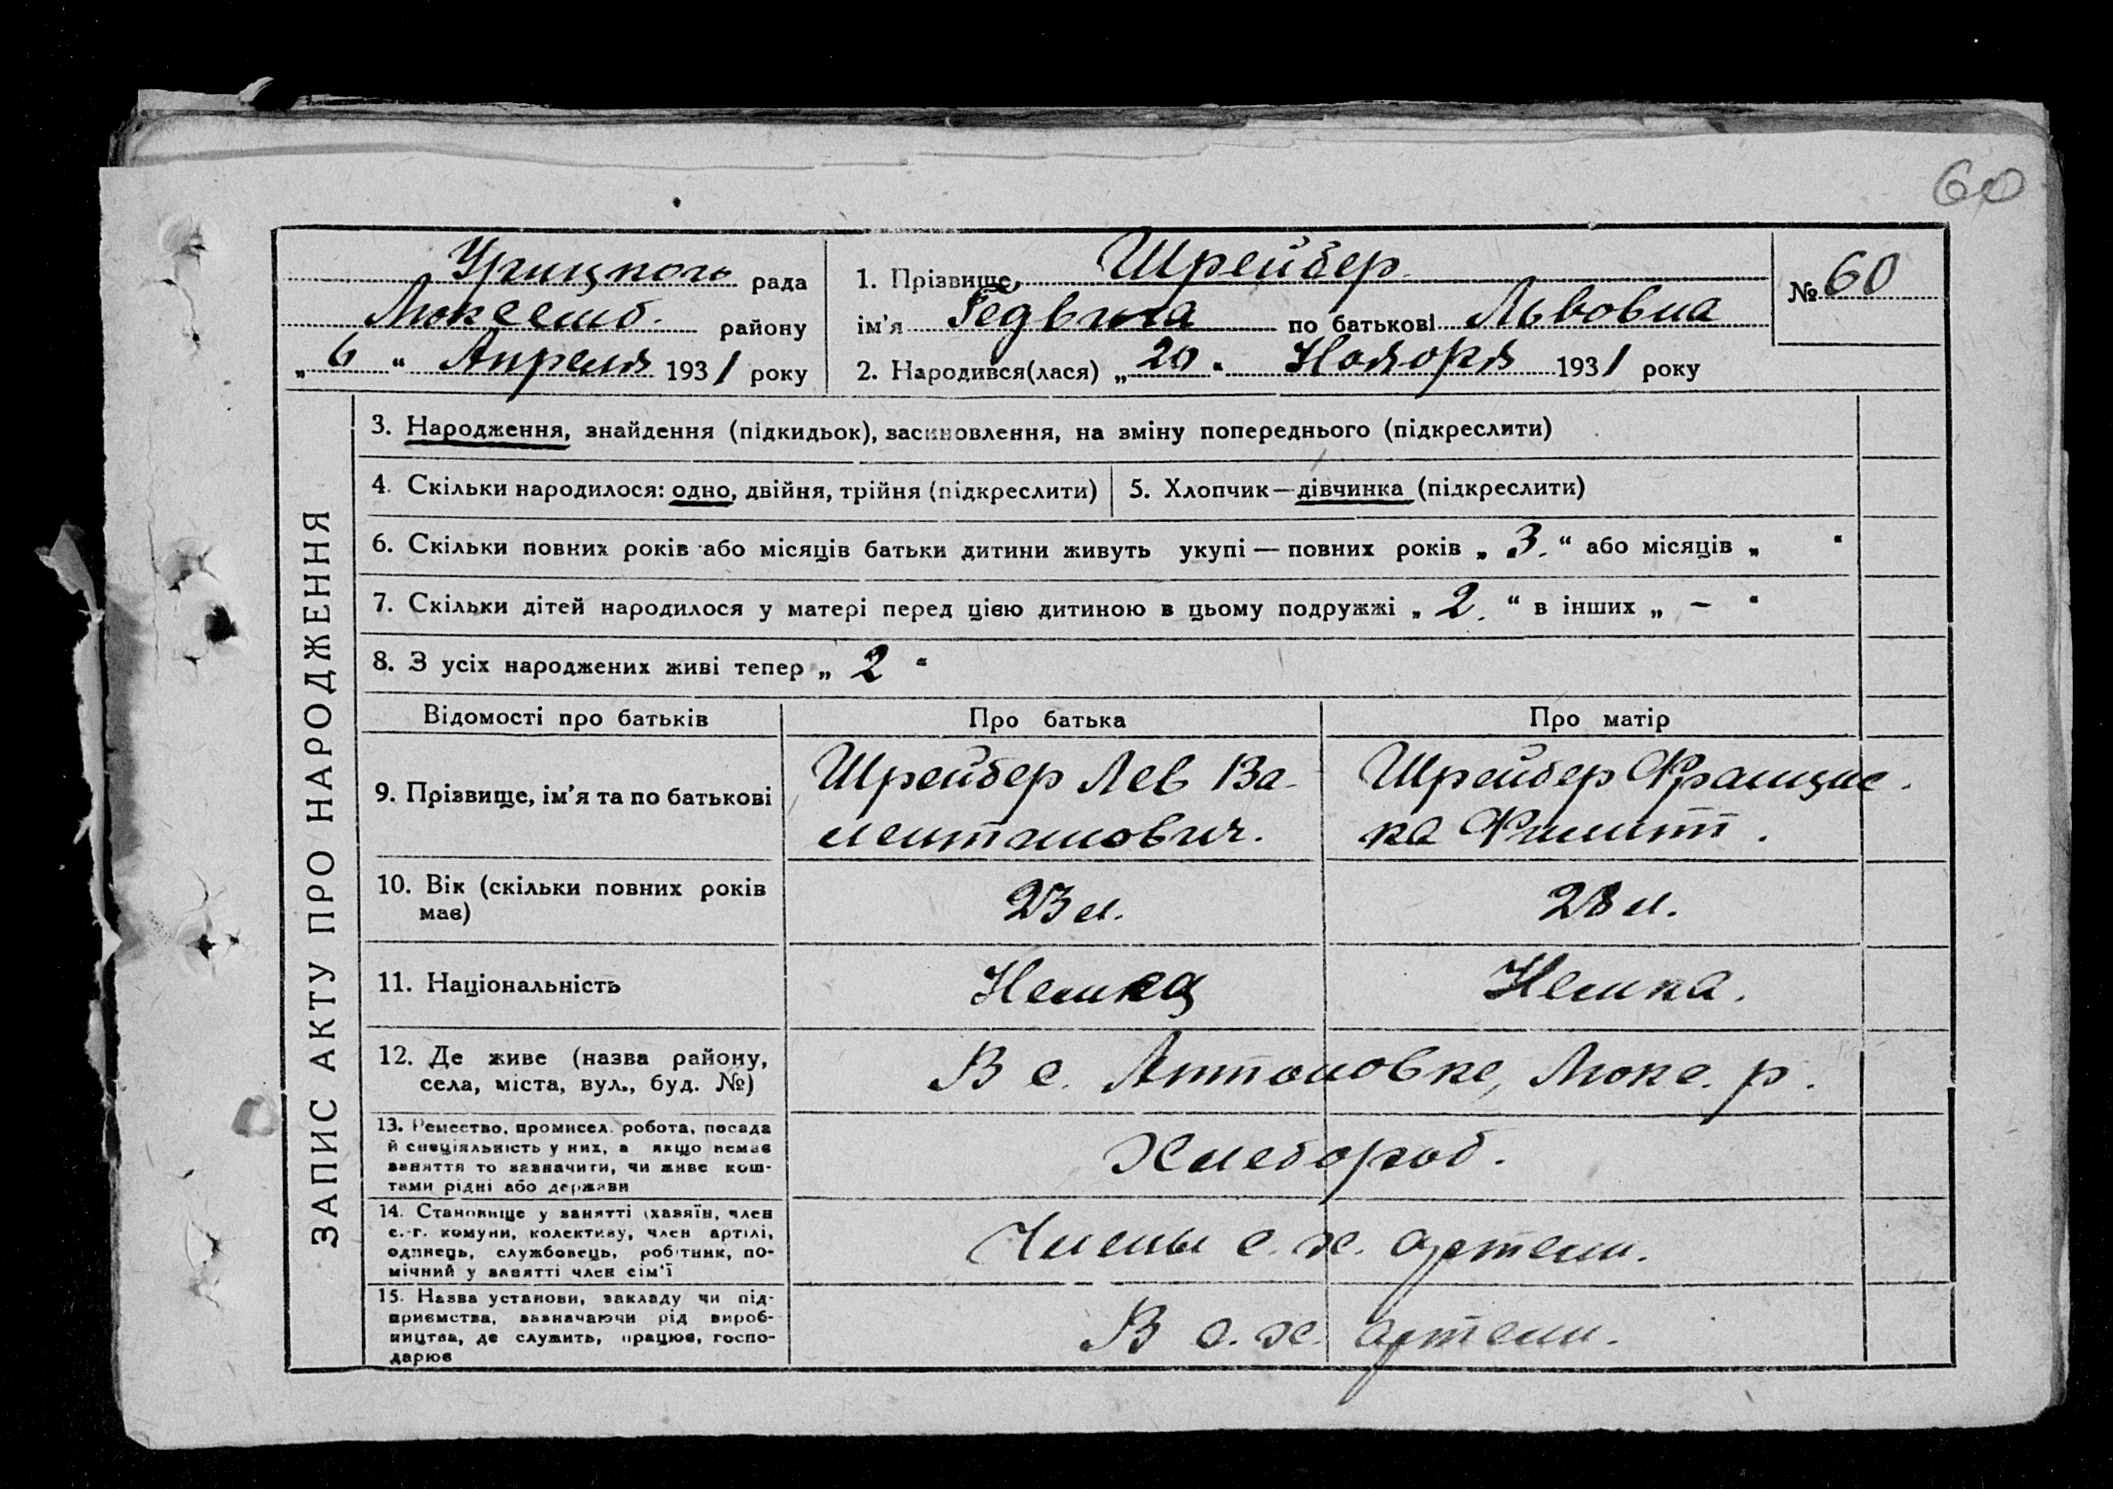 60
Урицкого рада
Люксемб. району
„ 6 “ Апреля 1931 року
1. Прізвище Шрейбер
ім'я Гедвига по батькові Львовна
№ 60
2. Народився(лася) „ 20 “ Ноября 1931 року
ЗАПИС АКТУ ПРО НАРОДЖЕННЯ
3. Народження, знайдення (підкидьок), засиновлення, на зміну попереднього (підкреслити)
4. Скільки народилося: одно, двійня, трійня (підкреслити)
5. Хлопчик—дівчинка (підкреслити)
6. Скільки повних років або місяців батьки дитини живуть укупі — повних років „ 3. “ або місяців „ “
7. Скільки дітей народилося у матері перед цією дитиною в цьому подружжі „ 2. “ в інших „ – “
8. З усіх народжених живі тепер „ 2 “
Відомості про батьків
Про батька
Про матір
9. Прізвище, ім'я та по батькові
Шрейбер Лев Ва-
лентинович.
Шрейбер Францис-
ка Филипп.
10. Вік (скільки повних років
має)
23 л.
28 л.
11. Національність
Немец
Немка.
12. Де живе (назва району,
села, міста, вул., буд. №)
В с. Антоновке, Люкс. р.
13. Ремество, промисел, робота, посада
й спеціяльність у них, а якщо немає
заняття то зазначити, чи живе кош-
тами рідні або держави
Хлебороб.
14. Становище у занятті (хазяїн, член
с.-г. комуни, колективу, член артілі,
одинець, службовець, робітник, по-
мічний у занятті член сім'ї
Члены с. х. артели.
15. Назва установи, закладу чи під-
приємства, зазначаючи рід вироб-
ництва, де служить, працює, госпо-
дарює
В с. х. артели.